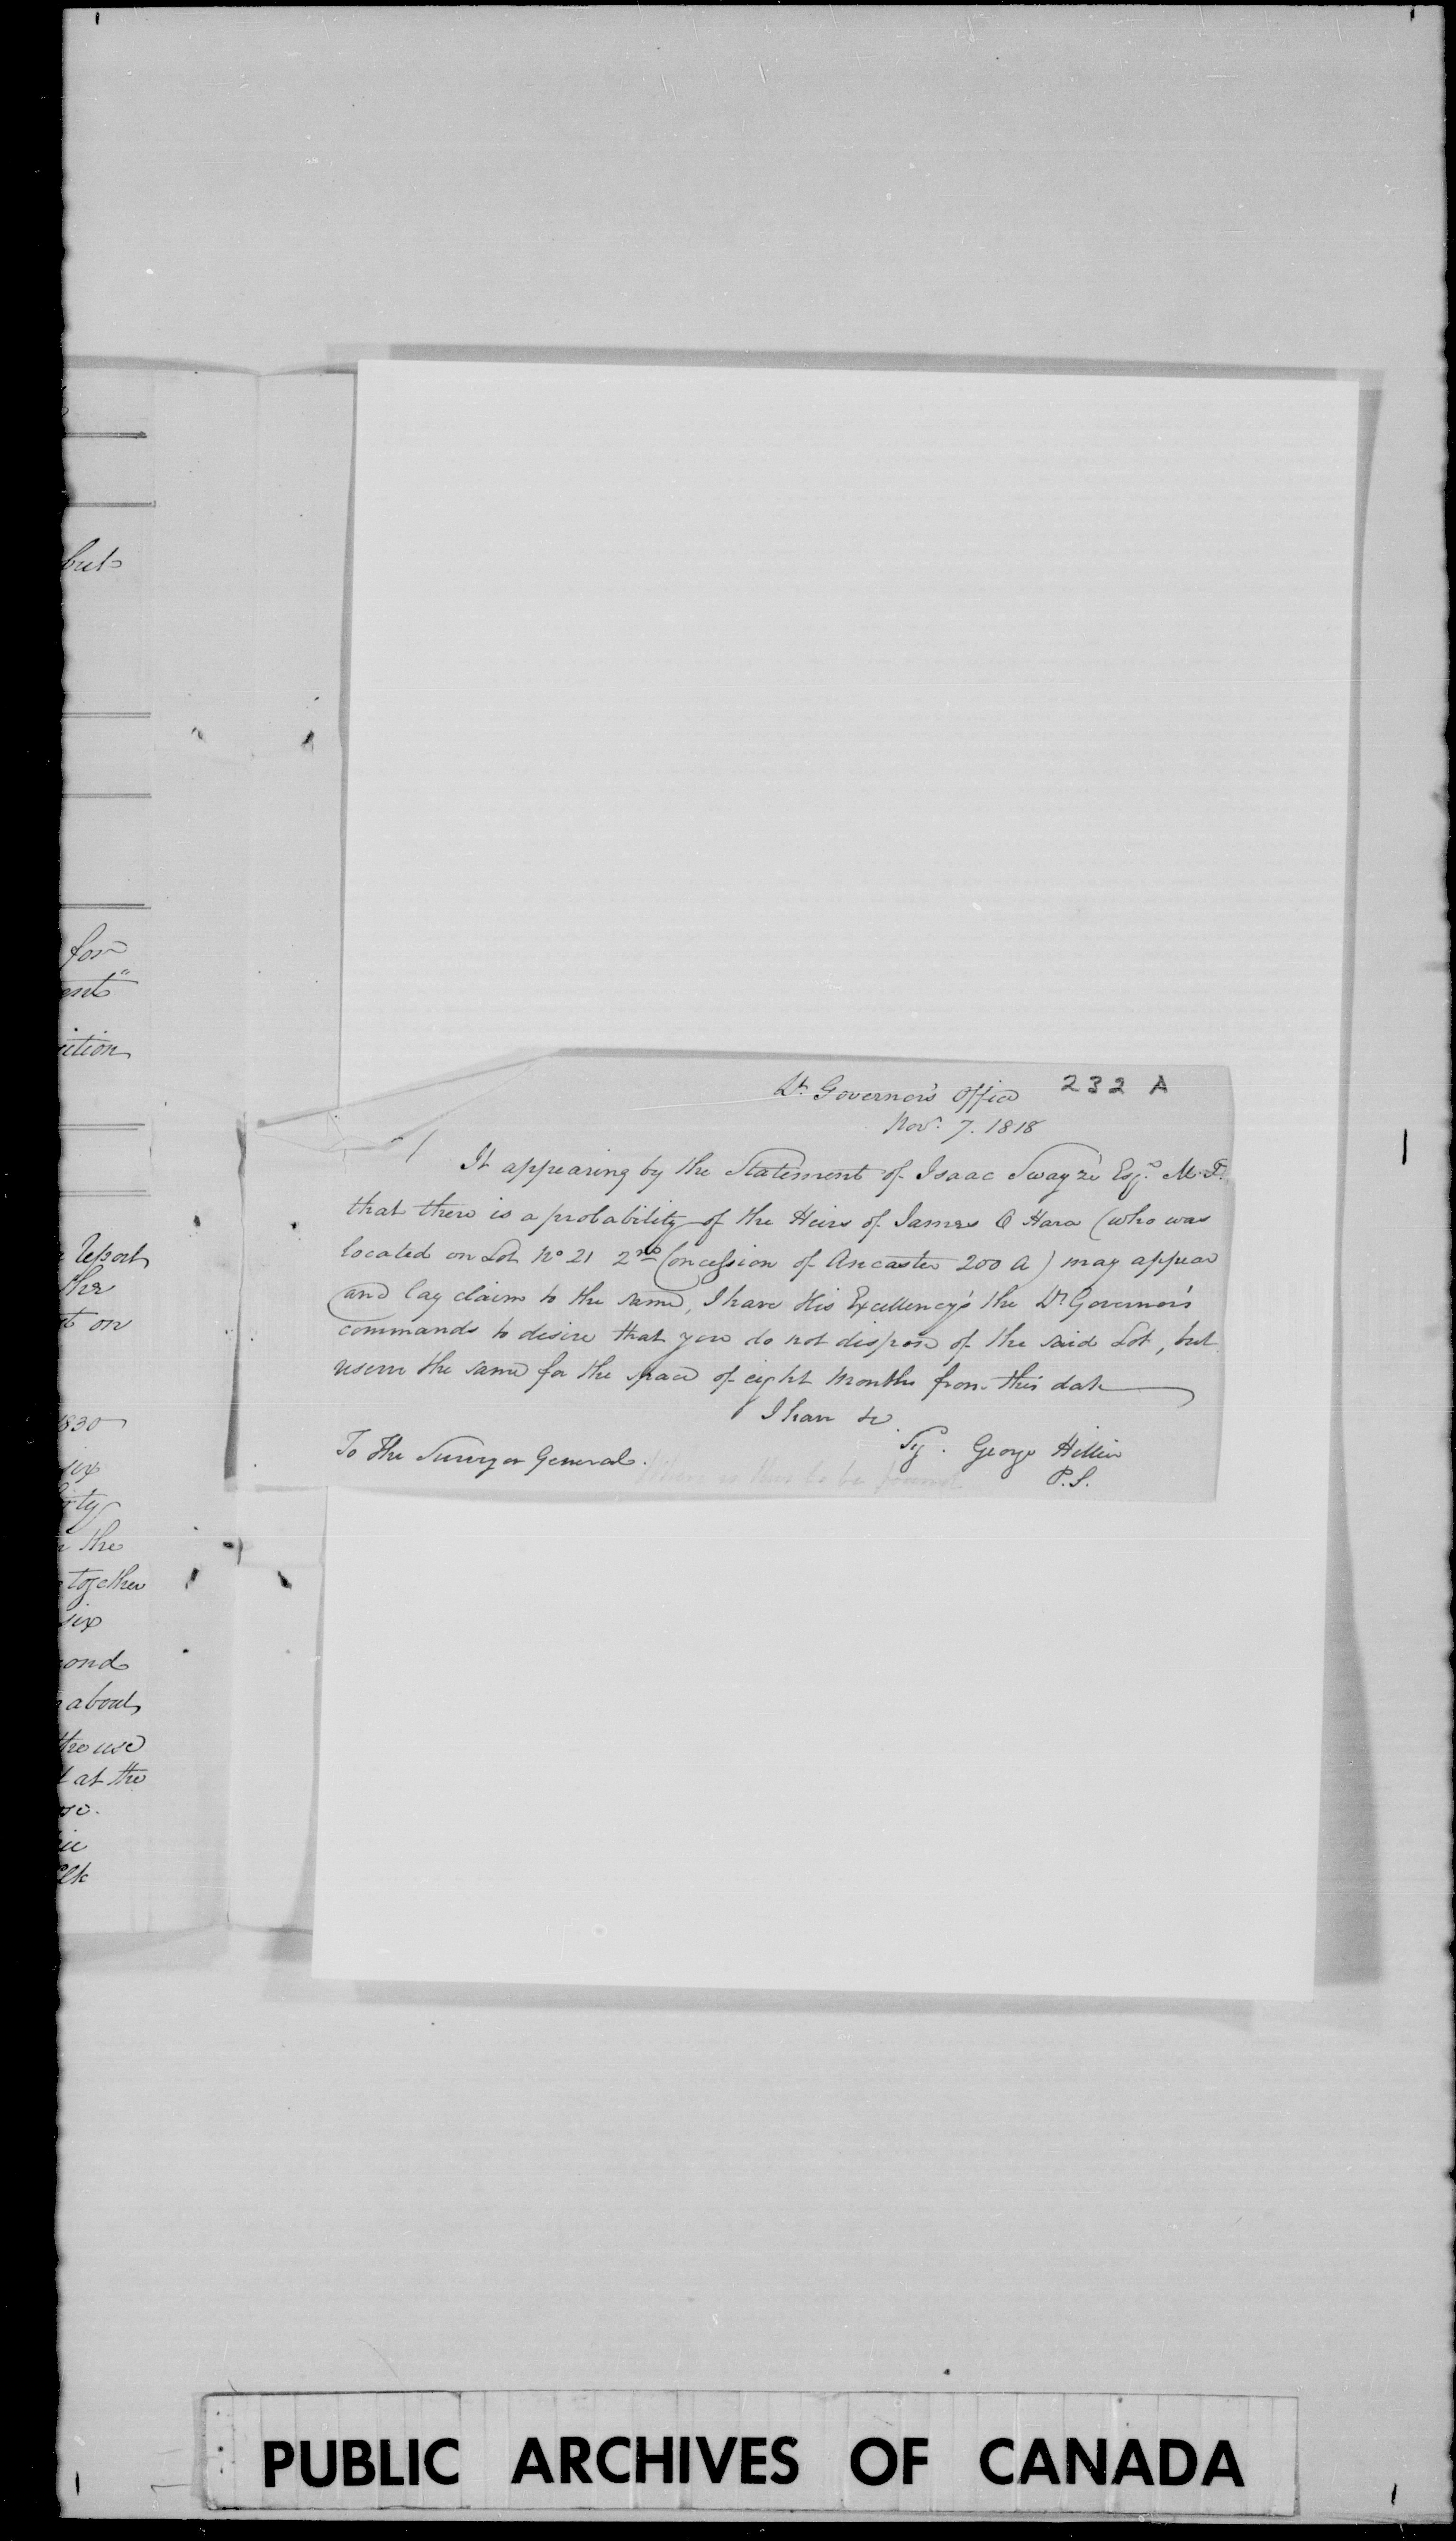 but
for
ent"
ition
Report
the
t on
1830
six
the
together
six
ond
about
the use
at the
Clk
232 A
Lt. Governor's Office
Novr. 7. 1818
It appearing by the Statement of Isaac Swayzé Esqr. M.P.
that there is a probability of the Heirs of James O Hara (who was
located on Lot No 21 2nd Concession of Ancaster 200 A) may appear
and lay claim to the same, I have His Excellency's the Lt Governor's
commands to desire that you do not dispose of the said Lot, but
reserve the same for the space of eight Months from this date
I have &c.
Sig. George Hillier
P.S.
To The Surveyor General.
Where is this to be found
PUBLIC ARCHIVES OF CANADA